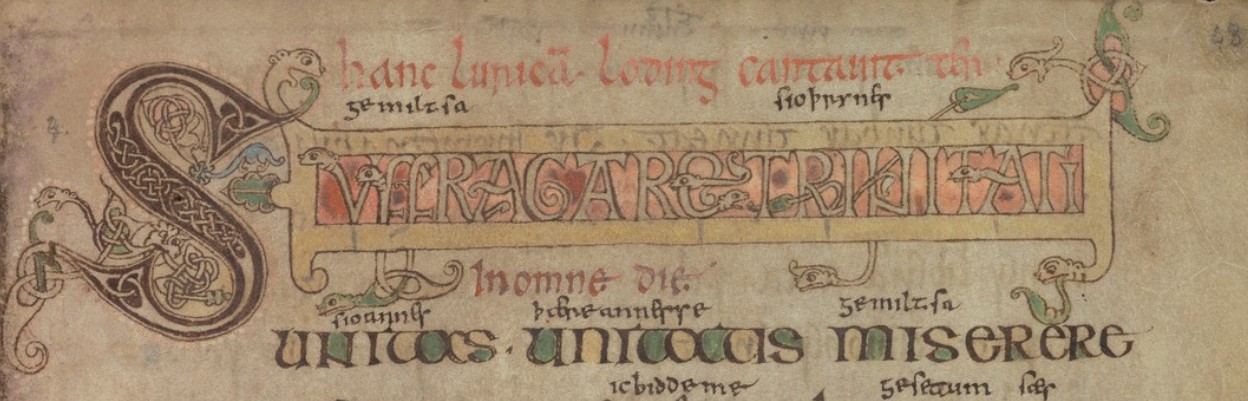 hanc luricā loding cantauit
gemiltsa sio þrynes
SUFFRAGARE TRINITATI
In omne die
sio annes þære annesse gemiltsa
unitas · unitatis miserere
ic bidde me gesetum sæs